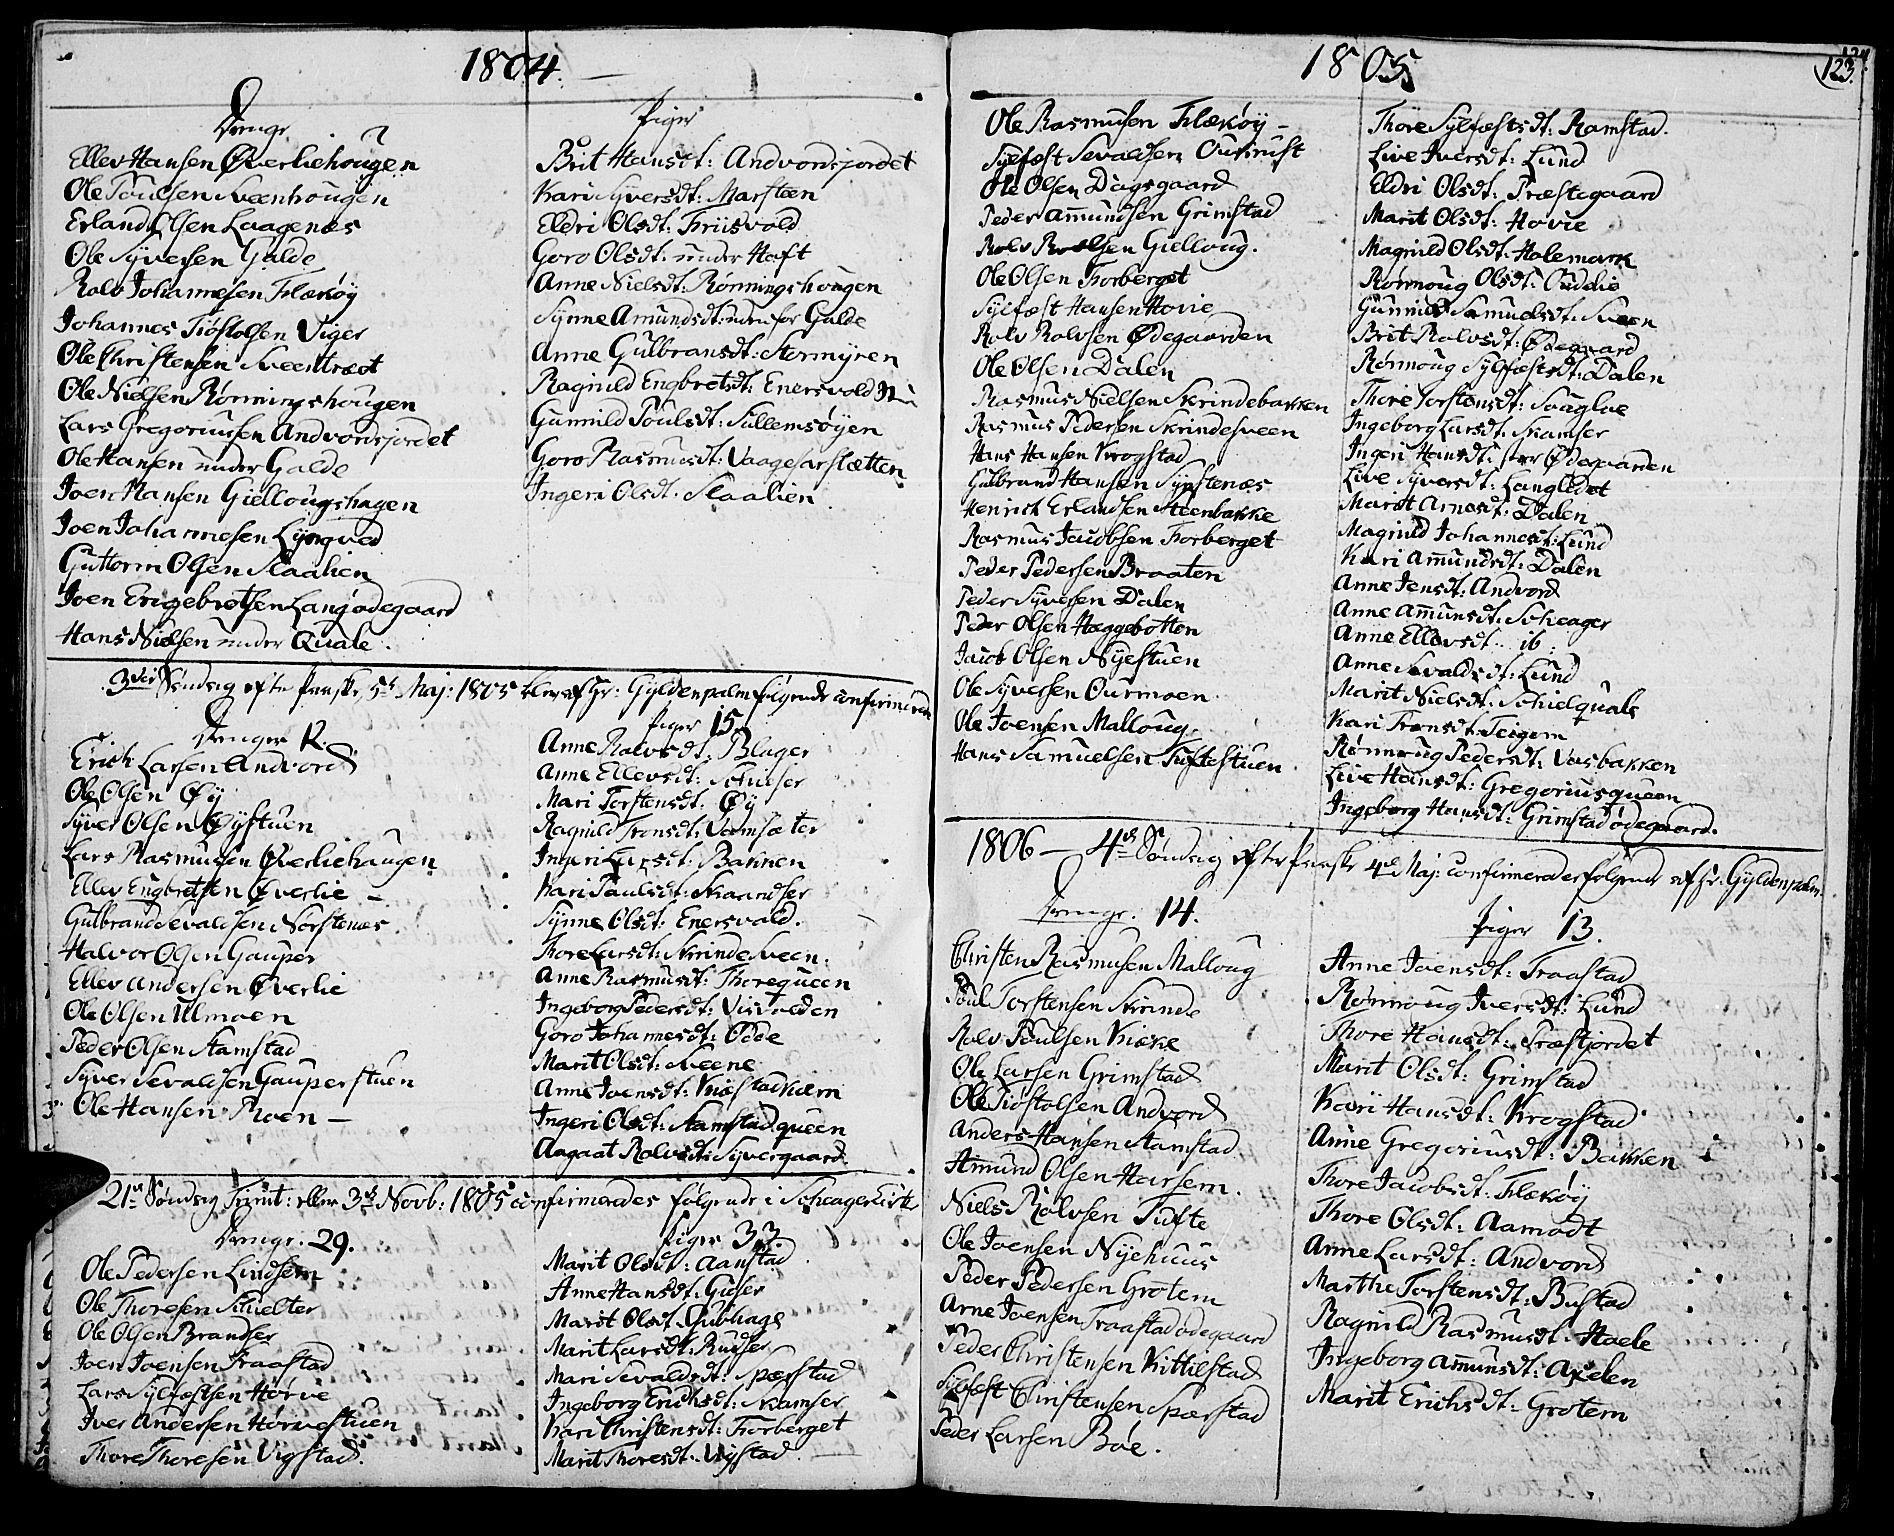 1804.
Drenge
Ellev Hansen Øverliehougen
Ole Poulsen Sveenhougen
Erland Olsen Laagenæs
Ole Syversen Galde
Rolv Johannesen Flækøy
Johannes Tiøstolsen Viger
Ole Christensen Sveettræet
Ole Nielsen Rønningshougen
Lars Gregoriussen Andvordsjordet
Ole Hansen under Galde
Joen Hansen Giellougshagen
Joen Johannesen Lyngved
Guttorm Olsen Slaalien
Joen Engebretsen Langødegaard
Hans Nielsen under Quale.
Piger
Brit Hansdt: Andvordsjordet
Kari Syversdt: Marsteen
Eldri Olsdt: Friisvold
Goro Olsdt: under Hoft
Anne Nielsdt: Rønningshougen
Synne Amundsdt: nden for Galde
Anne Gulbransdt: Stormyren
Ragnild Engbretsdt: Enersvold
Gunnild Poulsdt: Sullemsøyen
Goro Rasmusdt: Vaagesarslætten
Ingeri Olsdt. Slaalien
3die Søndag efter Paaske, 5te Maj: 1805 blev af Hr: Gyldenpalm følgende confirmerede
Drenge 12.
Erich Larsen Andvord
Ole Olsen Øy
Syver Olsen Øystuen
Lars Rasmusen Øverliehaugen
Ellev Engbretsen Øverlie –
Gulbrand Sevaldsen Norstenæs.
Halvor Olsen Gauper
Ellev Andersen Øverlie
Ole Olsen Ulmoen
Peder Olsen Stamstad
Syver Sevaldsen Gauperstuen
Ole Hansen Moen –
Piger 15.
Anne Rolvsdt: Blager
Anne Ellevsdt:
Mari Torstensdt: Øy
Ragnild Tronsdt: Vamsæter
Ingeri Larsdt: Bakken
Kari Paulsdt: Skamser
Synne Olsdt: Enersvold.
Thore Larsdt: Skrinde Sveen.
Anne Rasmusdt: Thorequeen
Ingeborg Pedersdt: Visvolden
Goro Johannesdt: Odde
Marit Olsdt: Sveene
Anne Joensdt: Knæstadkiern
Ingeri Olsdt: Stamstadqueen
Aagaat Rolvsdt: Syvergaard.
21de Søndag Trinit: eller 3de Novb: 1805 confirmeredes følgende i Scheager Kirke
Drenge. 29.
Ole Pedersen Lindsem
Ole Thoresen
Ole Olsen Brandser
Joen Joensen Traastad
Lars Sylfæstsen Hørve
Iver Andersen Hørvestuen
Thore Thoresen Vigstad.
Piger 33.
Marit Olsdt: Aanstad
Anne Hansdt: Giuser
Marit Olsdt. Gubhage
Marit Larsdt: Rudser
Mari Sevaldsdt: Spærstad
Ingeborg Erichsdt: Skamser
Kari Christensdt: Forberget
Marit Thoresdt: Vigstad
1805
123.
Ole Rasmusen Flækøy –
Sylfæst Sevaldsen Ourust
Ole Olsen Dagsgaard
Peder Amundsen Grimstad
Rolv Rolvsen Gielloug.
Ole Olsen Forberget
Sylfæst Hansen Hovie
Rolv Rolvsen Ødegaarden
Ole Olsen Dalen
Rasmus Nielsen Skrindebakken
Rasmus Pedersen Skrindesveen
Hans Hansen Krogstad
Gulbrand Hansen Synstenæs
Henrich Erlandsen Steenbakke
Rasmus Jacobsen Forberget
Peder Pedersen Braaten
Peder Syversen Dalen
Peder Olsen Hæggebotten
Jacob Olsen Nyestuen
Ole Syversen Ourmoen
Ole Joensen Malloug.
Hans Samuelsen Tuftestuen.
Thore Sylfæstsdt: Ramstad.
Live Iversdt: Lund
Eldri Olsdt: Præstegaard
Marit Olsdt: Hovie
Magnild Olsdt: Holemark
Rønnoug Olsdt: Ouvlie
Gunnild Samuelsdt: Sveen
Brit Rolvsdt: Ødegaard
Rønnoug Sylfæstsdt: Dalen
Thore Torstensdt: Sougloe
Ingeborg Larsdt: Skamser
Ingeri Hansdt: Ødegaarden
Live Syversdt: Langledet
Marit Arnesdt: Dalen
Magnild Johannesdt: Lund
Kari Amundsdt: Dalen
Anne Jensdt: Andvord
Anne Amunsdt: Scheager
Anne Ellevsdt: ib:
Anne Sevaldsdt: Lund
Marit Nielsdt: Schielquale
Kari Tronsdt: Teigem
Rønnoug Pedersdt: Vasbakken
Live Hansdt: Gregoriusqueen
Ingeborg Hansdt: Grimstadødegaard.
1806 – 4de Søndag efter Paaske 4de Maj: confirmeredes følgende af Hr: Gyldenpalm.
Drenge. 14.
Christen Rasmusen Malloug
Poul Torstensen Skrinde
Rolv Poulsen Kiække
Ole Larsen Grimstad
Ole Tiøstolsen Andvord
Anders Hansen Stamstad
Amund Olsen Harsem.
Niels Rolvsen Tufte
Ole Joensen Nyehuus
Peder Pedersen Grotem
Arne Joensen Traastadødegaard
Peder Christensen Kittilstad
Sylfæst Christensen Spærstad
Peder Larsen Bøe.
Piger 13.
Anne Joensdt: Traastad
Rønnoug Iversdt: Lund
Thore Hansdt: Præstjordet
Marit Olsdt: Grimstad
Kari Hansdt: Krogstad
Anne Gregoriusdt: Bakken
Thore Jacobsdt: Flækøy
Thore Olsdt: Aamodt
Anne Larsdt: Andvord
Marthe Torstensdt: Bustad
Ragnild Rasmusdt: Hoele
Ingeborg Amunsdt: Axelen
Marit Erichsdt: Grotem